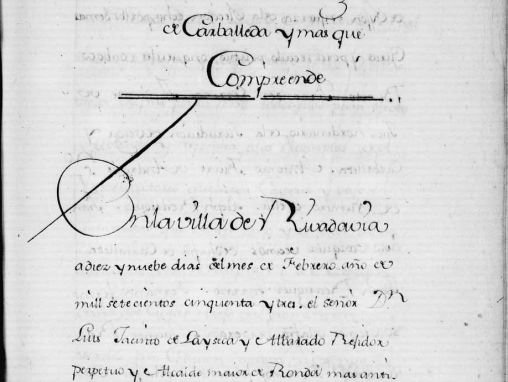 de Carballeda y mas que
Compreende
En la villa de Rivadavia
a diez y nuebe dias del mes de Febrero año de
mill setecientos cinquenta y tres. el señor Dn
Luis Jacinto de y Albarado Rejidor
perpetuo y Alcalde maior de Ronda mas anti